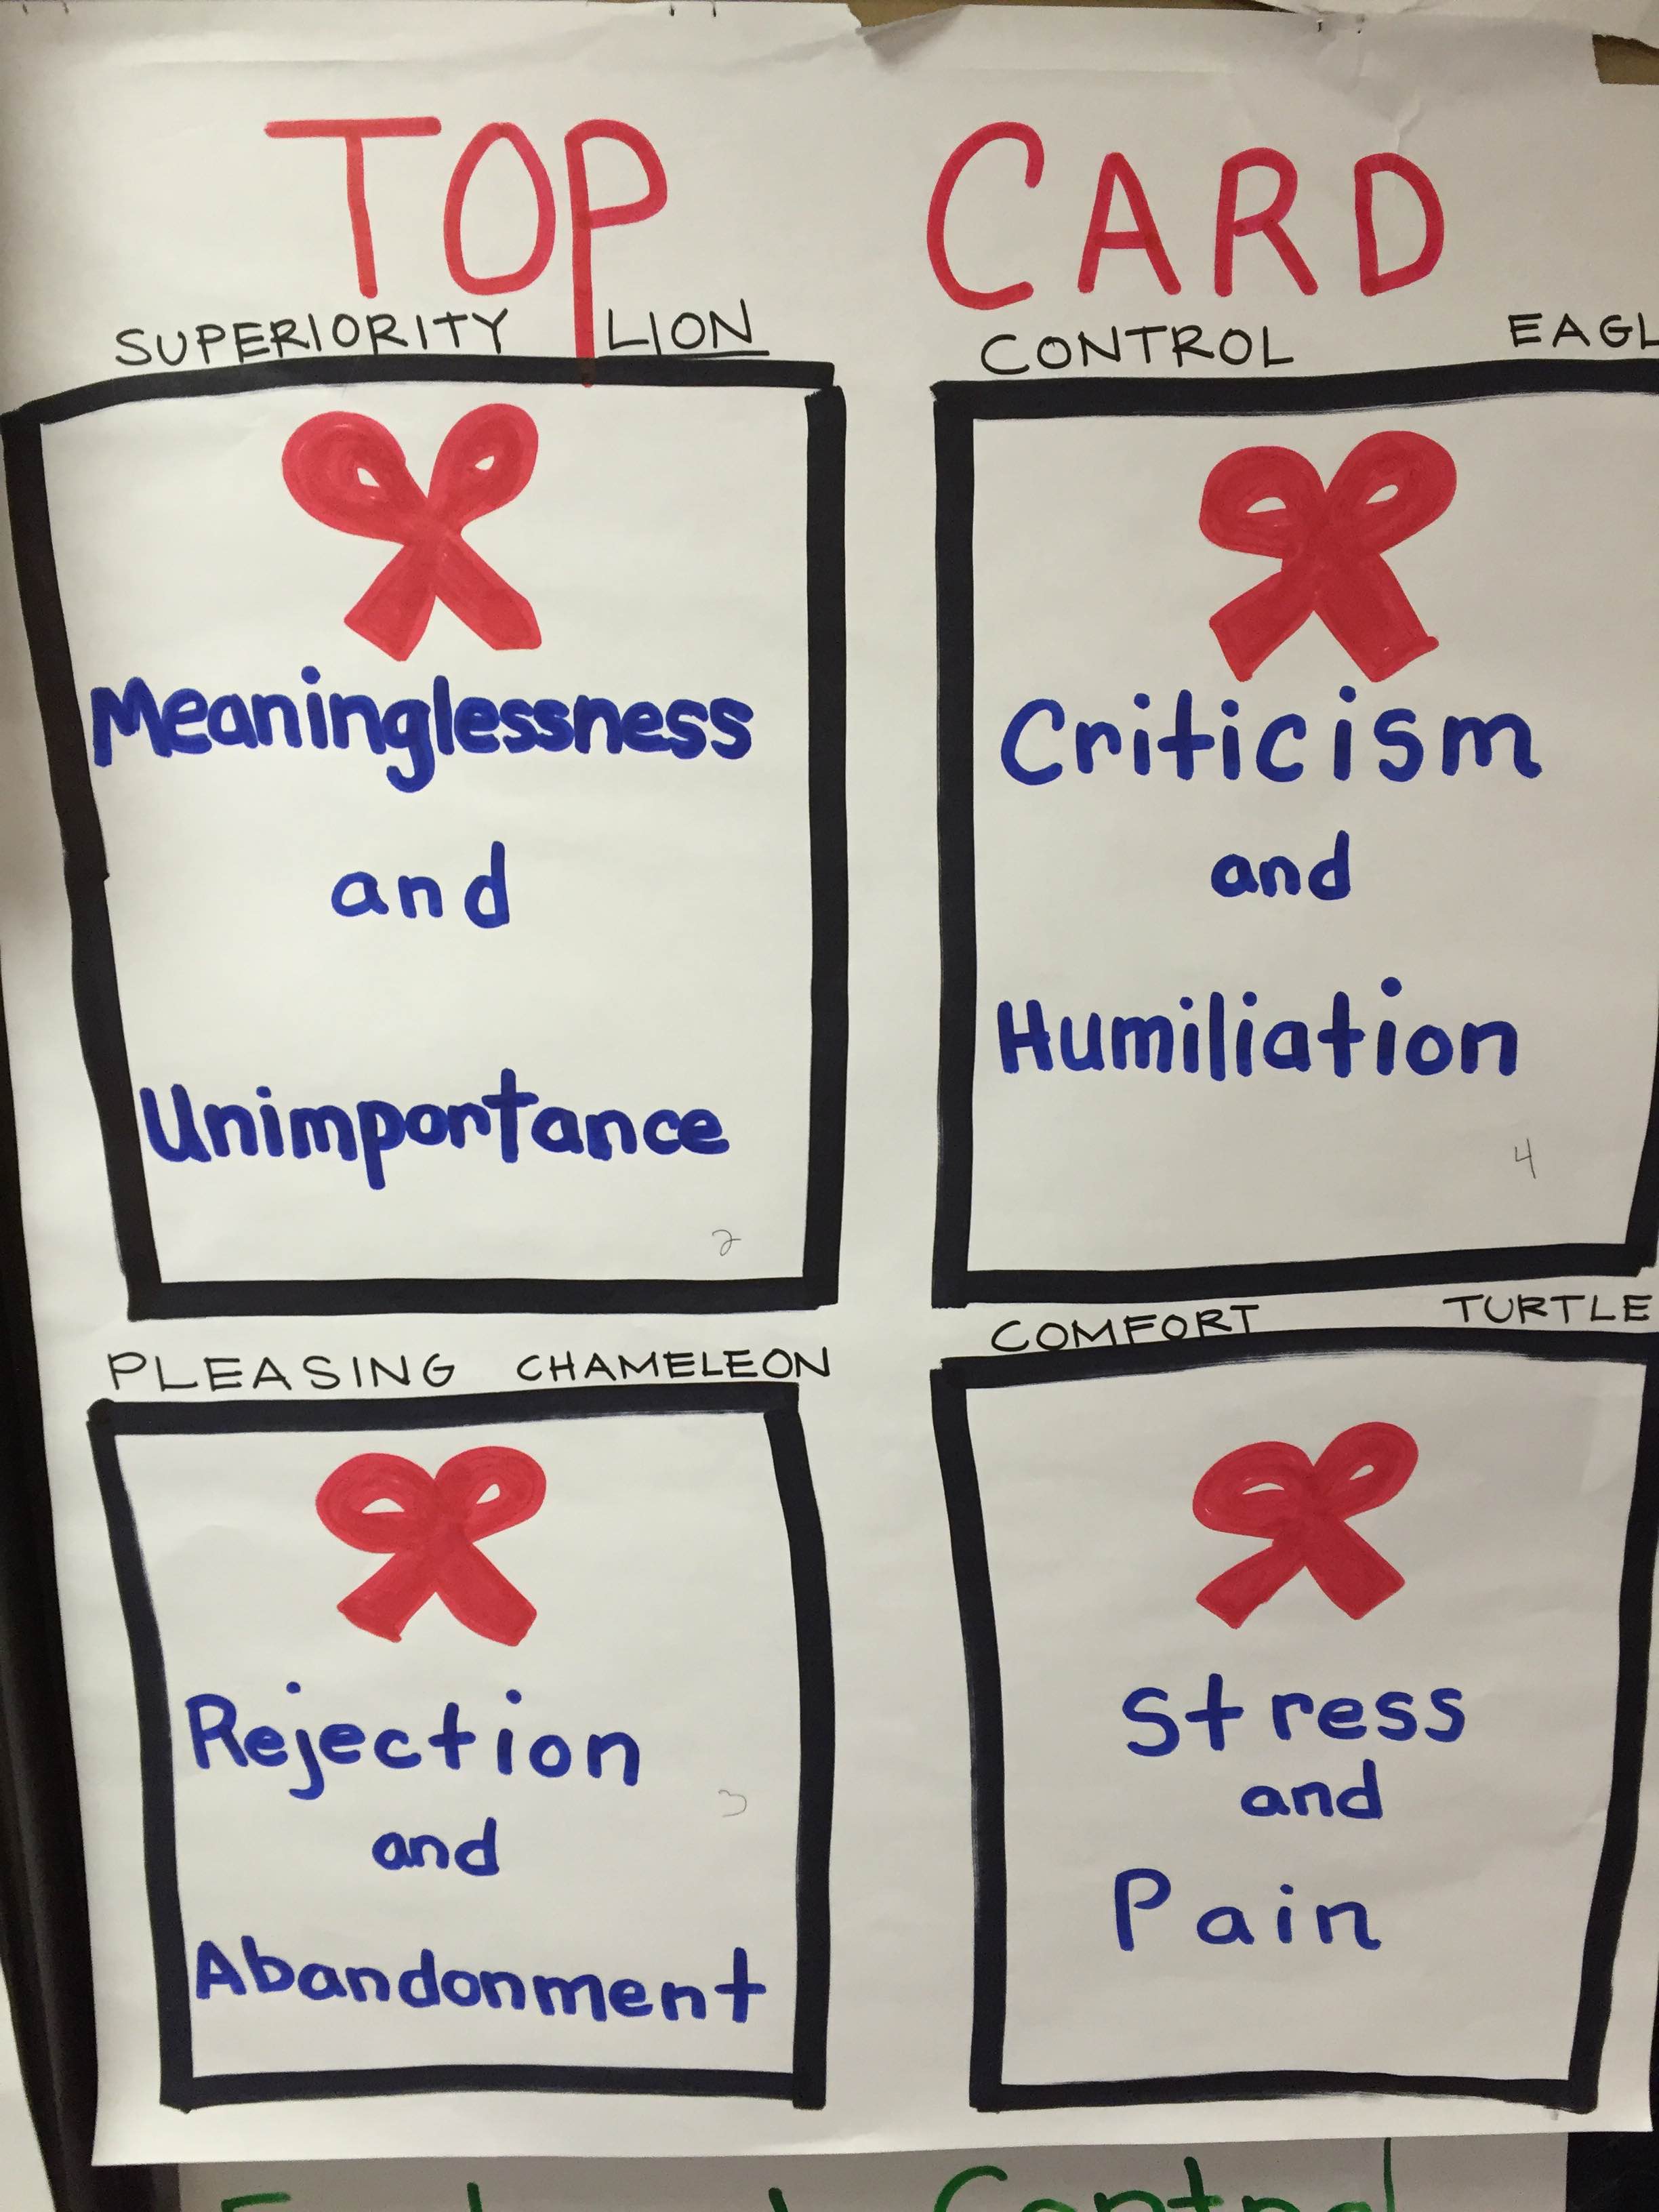 TOP CARD
SUPERIORITY LION
Meaninglessness
and
Unimportance
2
CONTROL EAGL
Criticism
and
Humiliation
4
PLEASING CHAMELEON
Rejection
3
and
Abandonment
COMFORT TURTLE
Stress
and
Pain